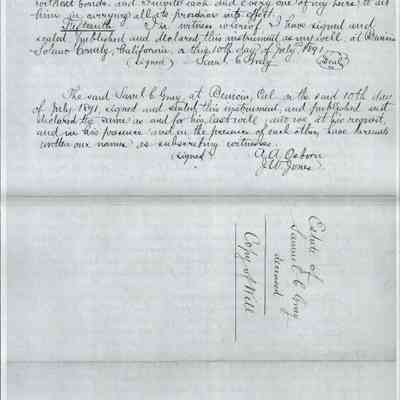 without bonds. and I invite each and every one of my heirs to aid
him in carrying all its provision into effect.
Fifteenth In witness whereof I have signed and
sealed published and declared this instrument as my will, at Benicia
Solano County, California, this 10th day of July 1891.
(signed) Saml C Gray (Seal)
The said Saml C Gray, at Benicia, Cal. on the said 10th day
of July 1891, signed and sealed this instrument, and published and
declared the same as and for his last will, and we, at his request,
and in his presence and in the presence of each other, have hereunto
written our names as subscribing witnesses.
(signed) A. A. Osborn
J W Jones
Estate of
Samuel C Gray
deceased
Copy of Will